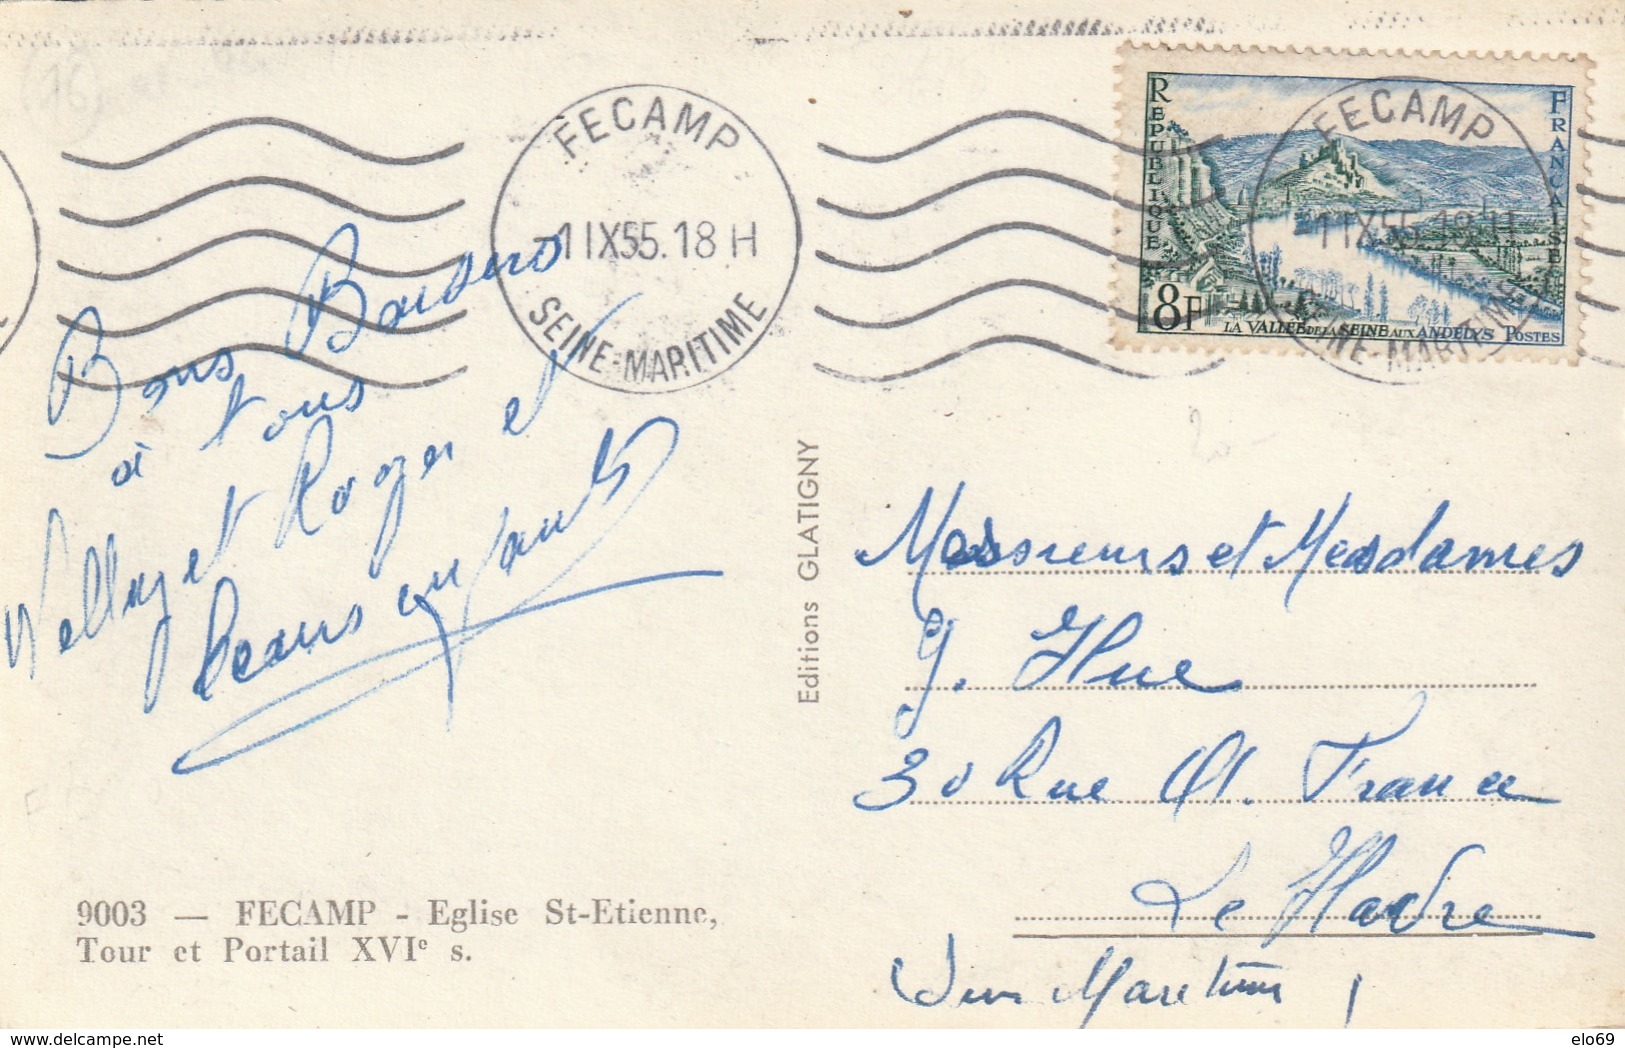 (76)
FECAMP
-1 IX55.18 H
SEINE-MARITIME
REPUBLIQUE FRANCAISE
8F
LA VALLEE DE LA SEINE AUX ANDELYS POSTES
FECAMP
-1 IX55.18 H
SEINE-MARITIME
Bons Baisers
à tous
et Roger et
beaux enfants
Editions GLATIGNY
Messieurs et Mesdames
G. Hue
30 Rue A. France
Le Havre
Seine Maritime
9003 — FECAMP - Eglise St-Etienne,
Tour et Portail XVIe s.
elo69